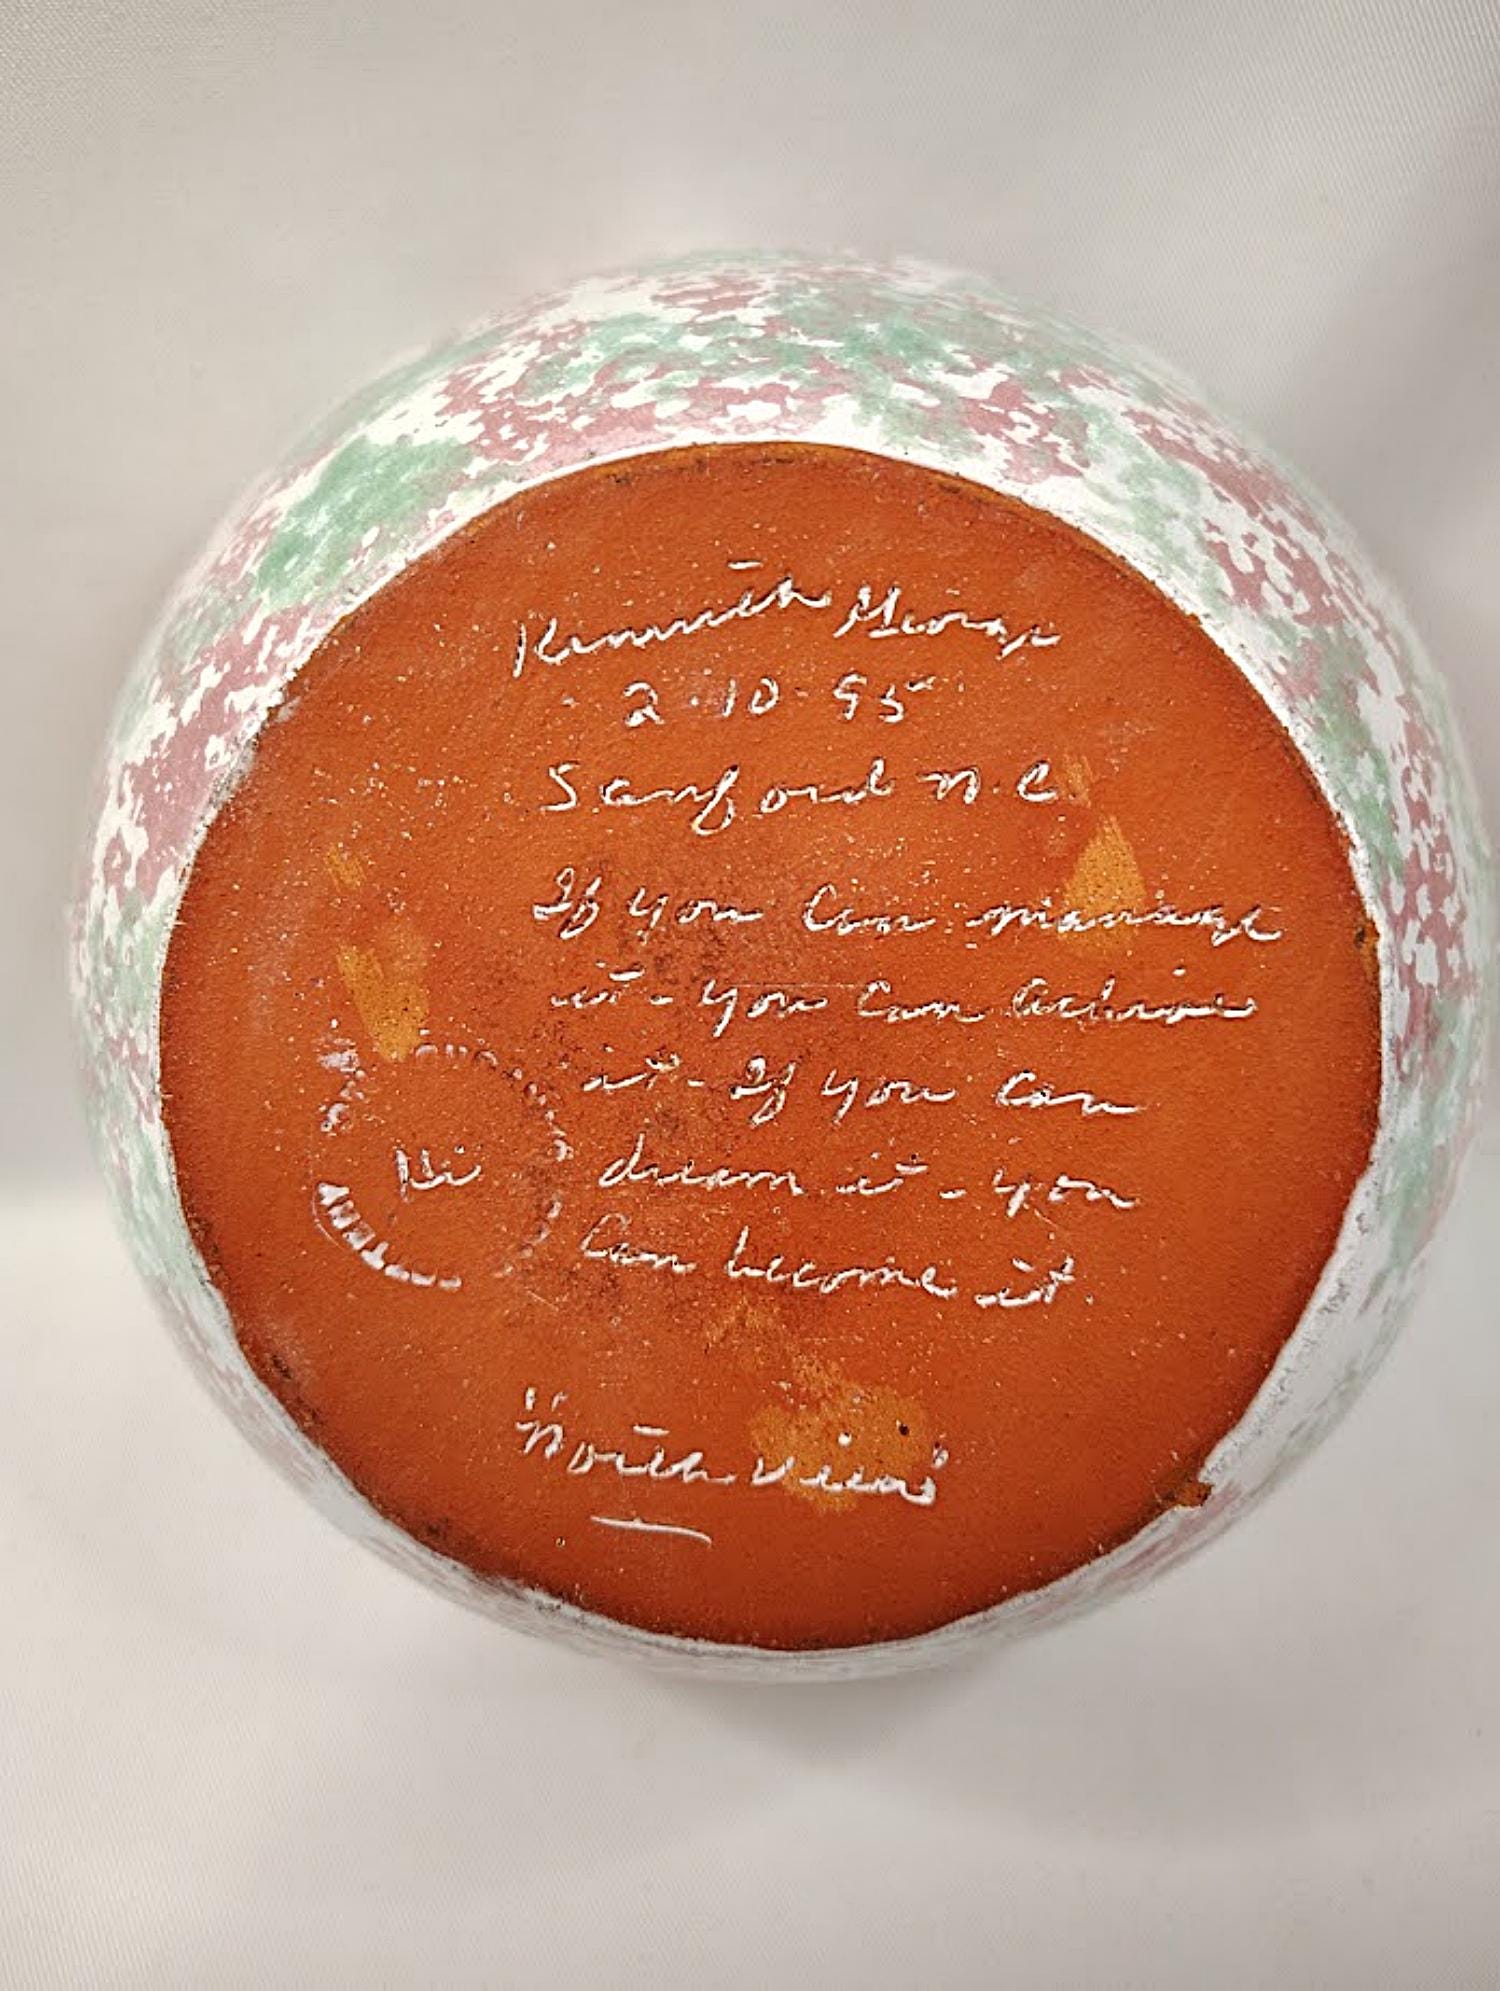 Kenneth George
2·10·95
Sanford N.C.
If you can manage
it - you can achieve
it - If you can
dream it - you
can become it.
"North View"